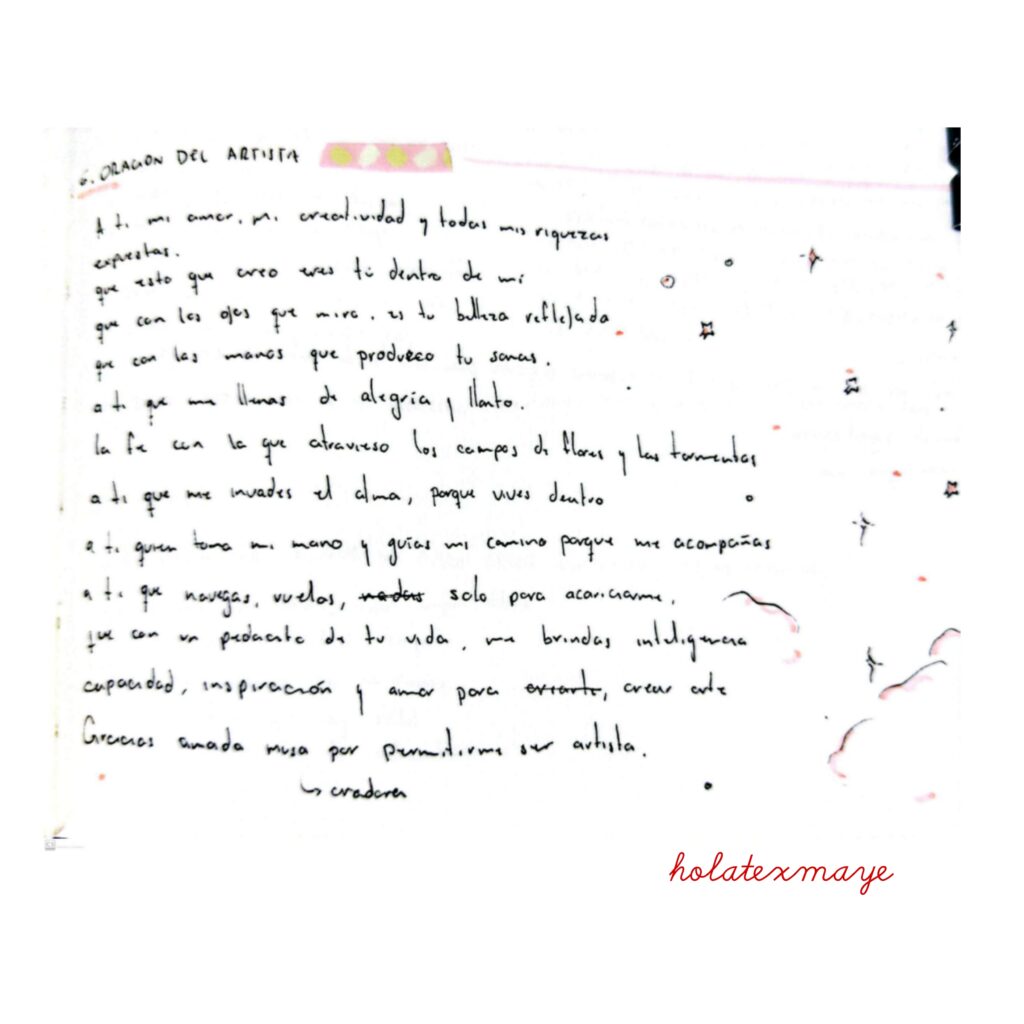 6. ORACION DEL ARTISTA
A ti mi amor, mi creatividad y todas mis riquezas
expuestas.
que esto que creo eres tú dentro de mí
que con los ojos que miro, es tu belleza reflejada
que con las manos que produzco tu sanas.
a ti que me llenas de alegría y llanto.
la fe con la que atravieso los campos de flores y las tormentas
a ti que me invades el alma, porque vives dentro
a ti quien toma mi mano y guías mi camino porque me acompañas
a ti que navegas, vuelas, nadas solo para acariciarme,
que con un pedacito de tu vida, me brindas inteligencia
capacidad, inspiración y amor para crear arte
Gracias amada musa por permitirme ser artista.
↳ creadora
holatexmaye